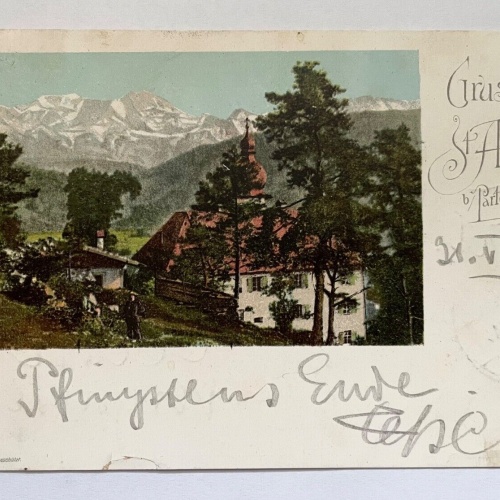 Gruss
St. A
b/Parte
31.V
Pfingstens Ende